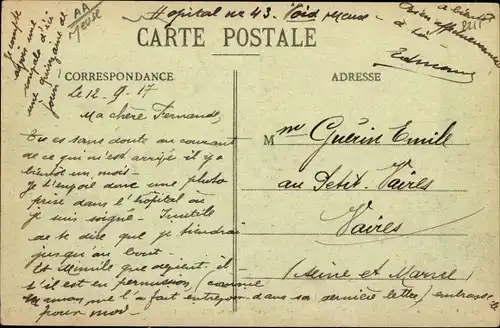 Hopital no 43. Void Meuse -
AA
Meuse
Je compte
après une
d'ici
une quinzaine de
jours -
à bientôt
Bien affectueusement
à toi
Edmond
CARTE POSTALE
CORRESPONDANCE
ADRESSE
Le 12-9-17
Ma chère Fernande,
Tu es sans doute au courant
de ce qui m'est arrivé il y a
bientôt un mois -
Je t'envoie donc une photo
prise dans l'hôpital où
je suis soigné. Inutile
de te dire que je tiendrai
jusqu'au bout.
Et Mimile que devient-il -
s'il est en permission, (comme
Maman me l'a fait entrevoir dans sa dernière lettre) embrasse-le
pour moi -
M me Guérin Emile
au Petit Vaires
Vaires
(Seine et Marne)